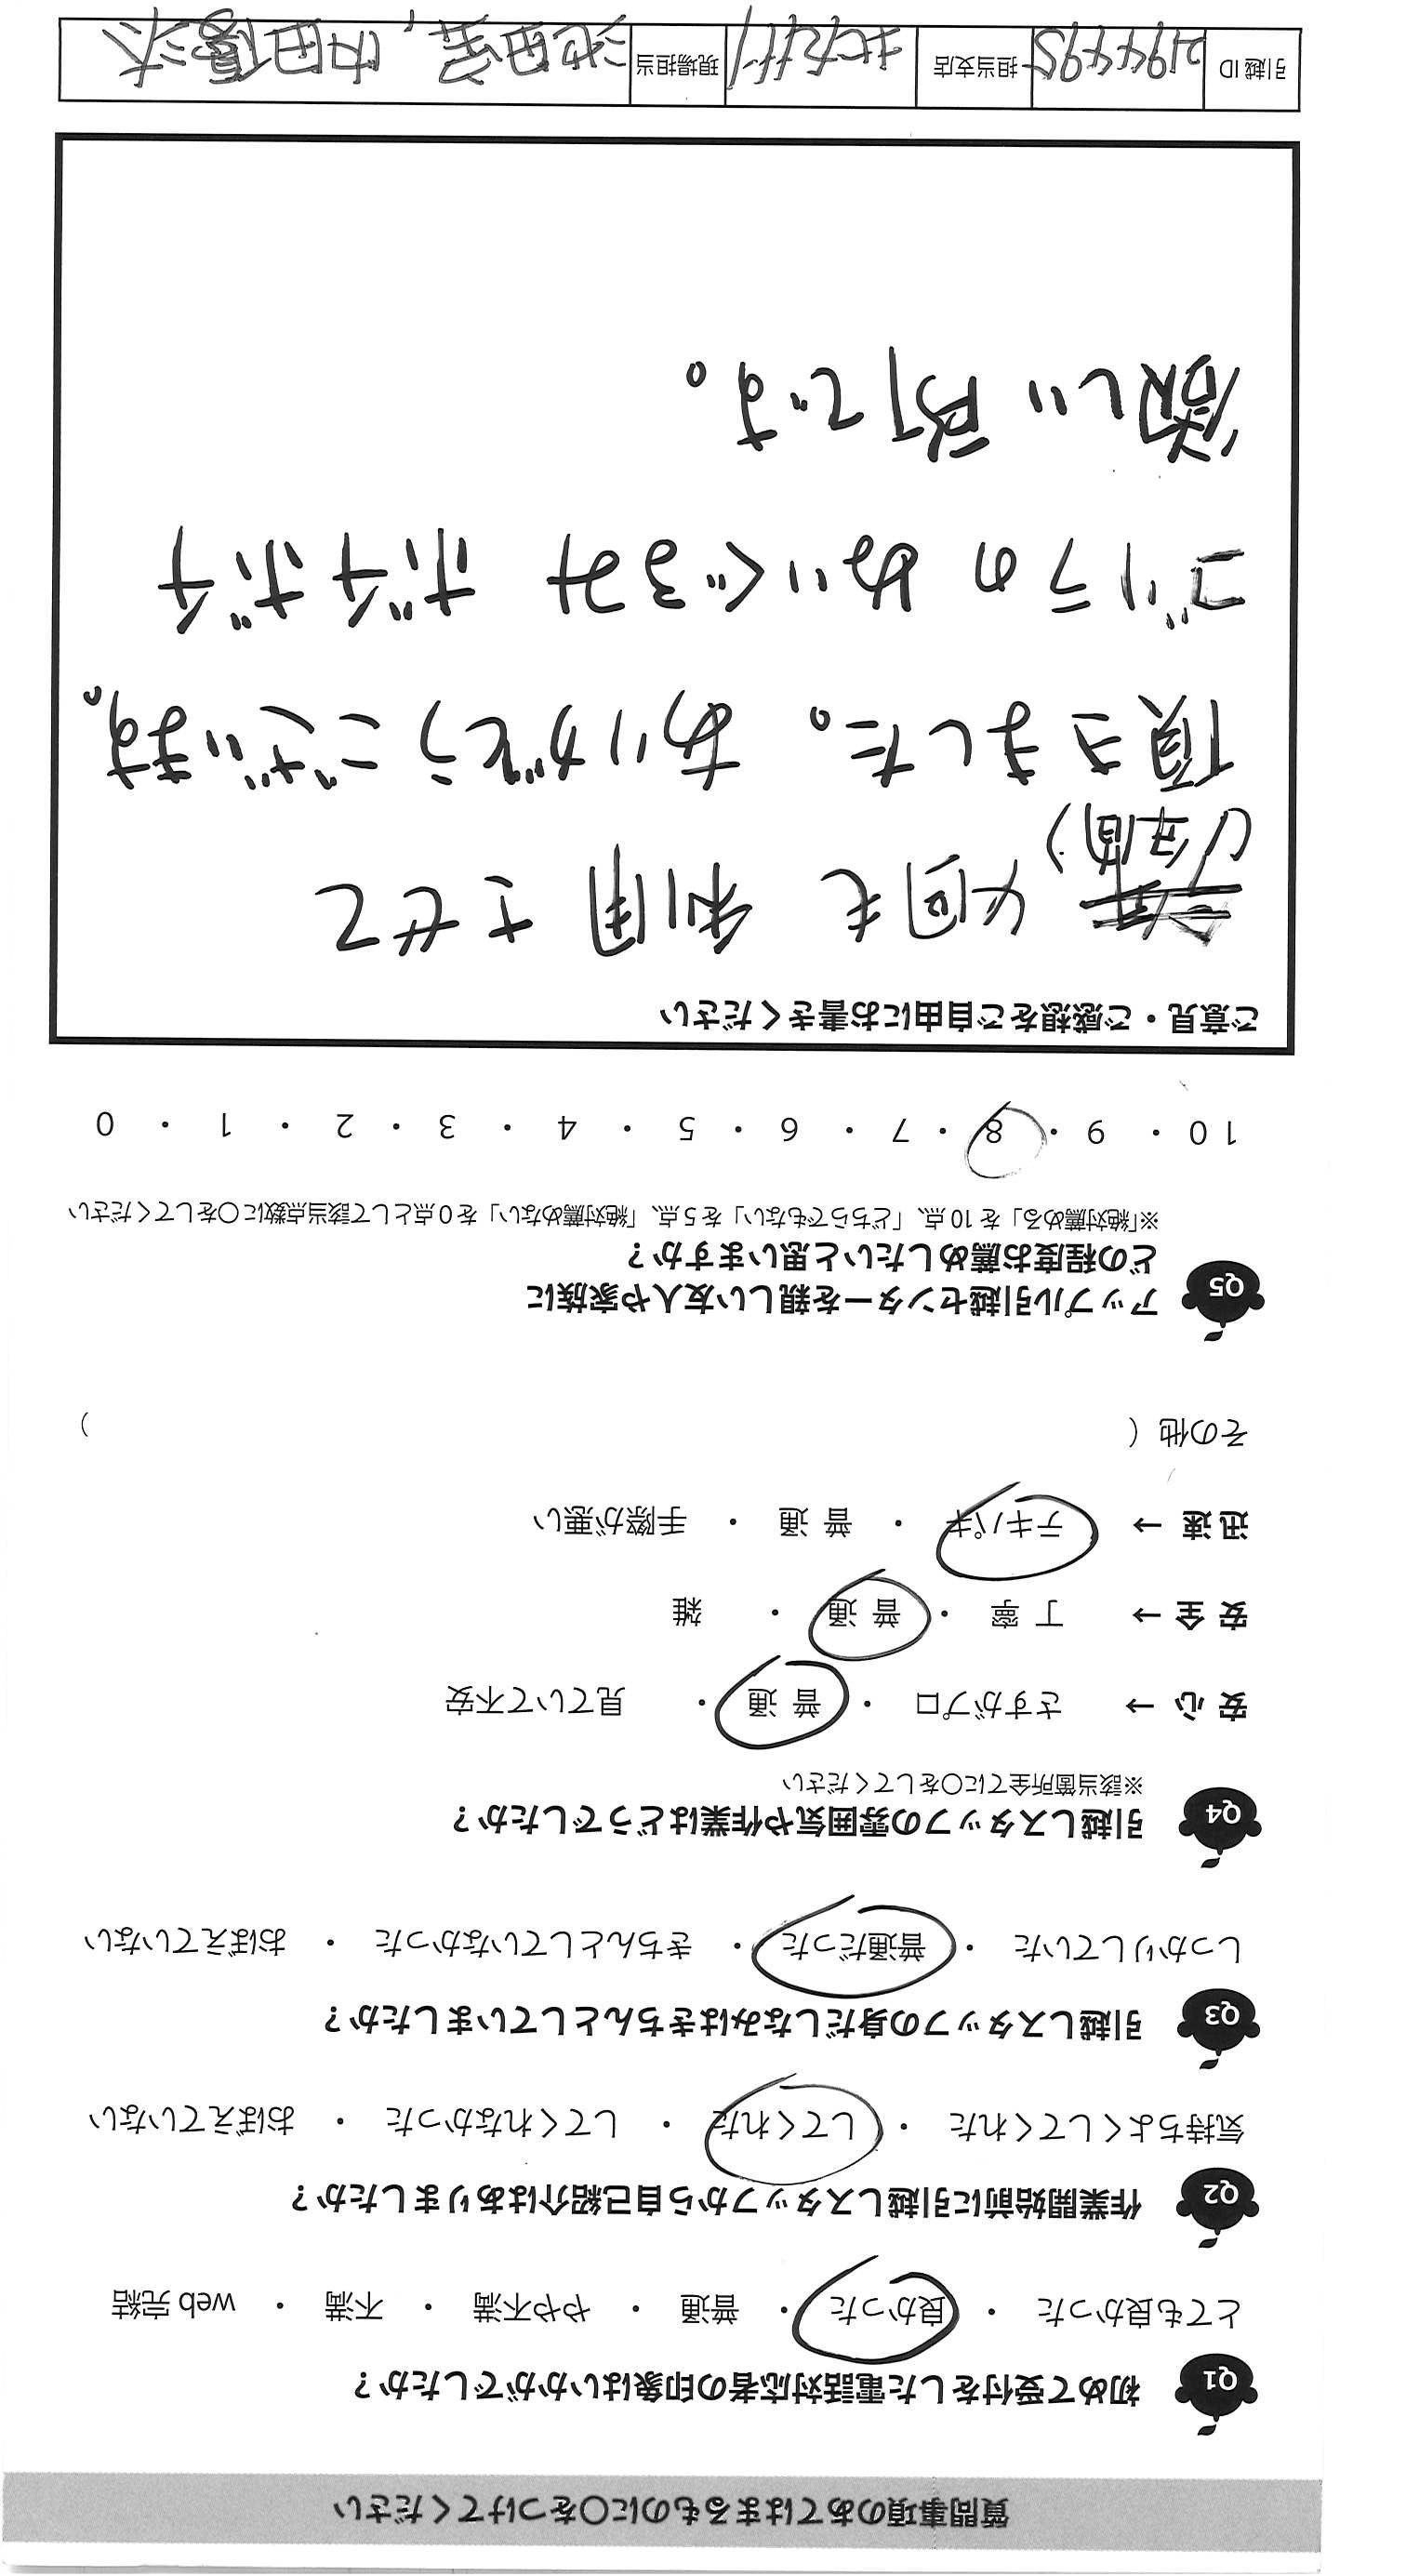 質問事項のあてはまるものに〇をつけてください
Q1 初めて受付をした電話対応者の印象はいかがでしたか？
とても良かった ・ 良かった ・ 普通 ・ やや不満 ・ 不満 ・ web 完結
Q2 作業開始前に引越しスタッフから自己紹介はありましたか？
気持ちよくしてくれた ・ してくれた ・ してくれなかった ・ おぼえていない
Q3 引越しスタッフの身だしなみはきちんとしていましたか？
しっかりしていた ・ 普通だった ・ きちんとしていなかった ・ おぼえていない
Q4 引越しスタッフの雰囲気や作業はどうでしたか？
※該当箇所全てに〇をしてください
安心 → さすがプロ ・ 普通 ・ 見ていて不安
安全 → 丁寧 ・ 普通 ・ 雑
迅速 → テキパキ ・ 普通 ・ 手際が悪い
その他（ ）
Q5 アップル引越センターを親しい友人や家族に
どの程度お薦めしたいと思いますか？
※「絶対薦める」を10点、「どちらでもない」を5点、「絶対薦めない」を0点として該当点数に〇をしてください
10 ・ 9 ・ 8 ・ 7 ・ 6 ・ 5 ・ 4 ・ 3 ・ 2 ・ 1 ・ 0
ご意見・ご感想をご自由にお書きください
何回も 利用させて
頂きました。ありがとうございます。
ゴリラのぬいぐるみ ボチボチ
欲しい所です。
引越ID 2194495 担当支店 現場担当 池田 , 内田